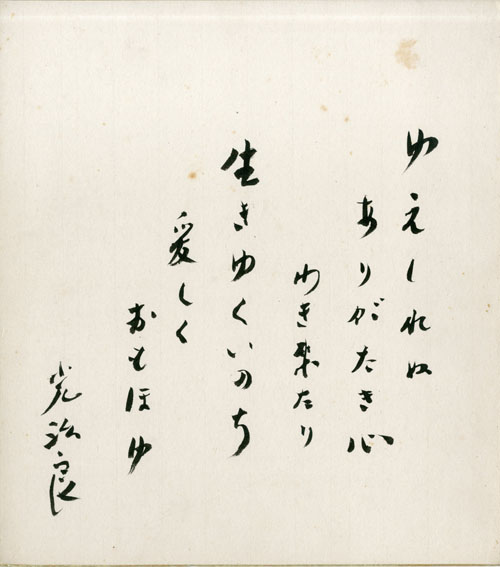 ゆえしれぬ
ありがたき心
わき来たり
生きゆくいのち
愛しく
おもほゆ
光治良